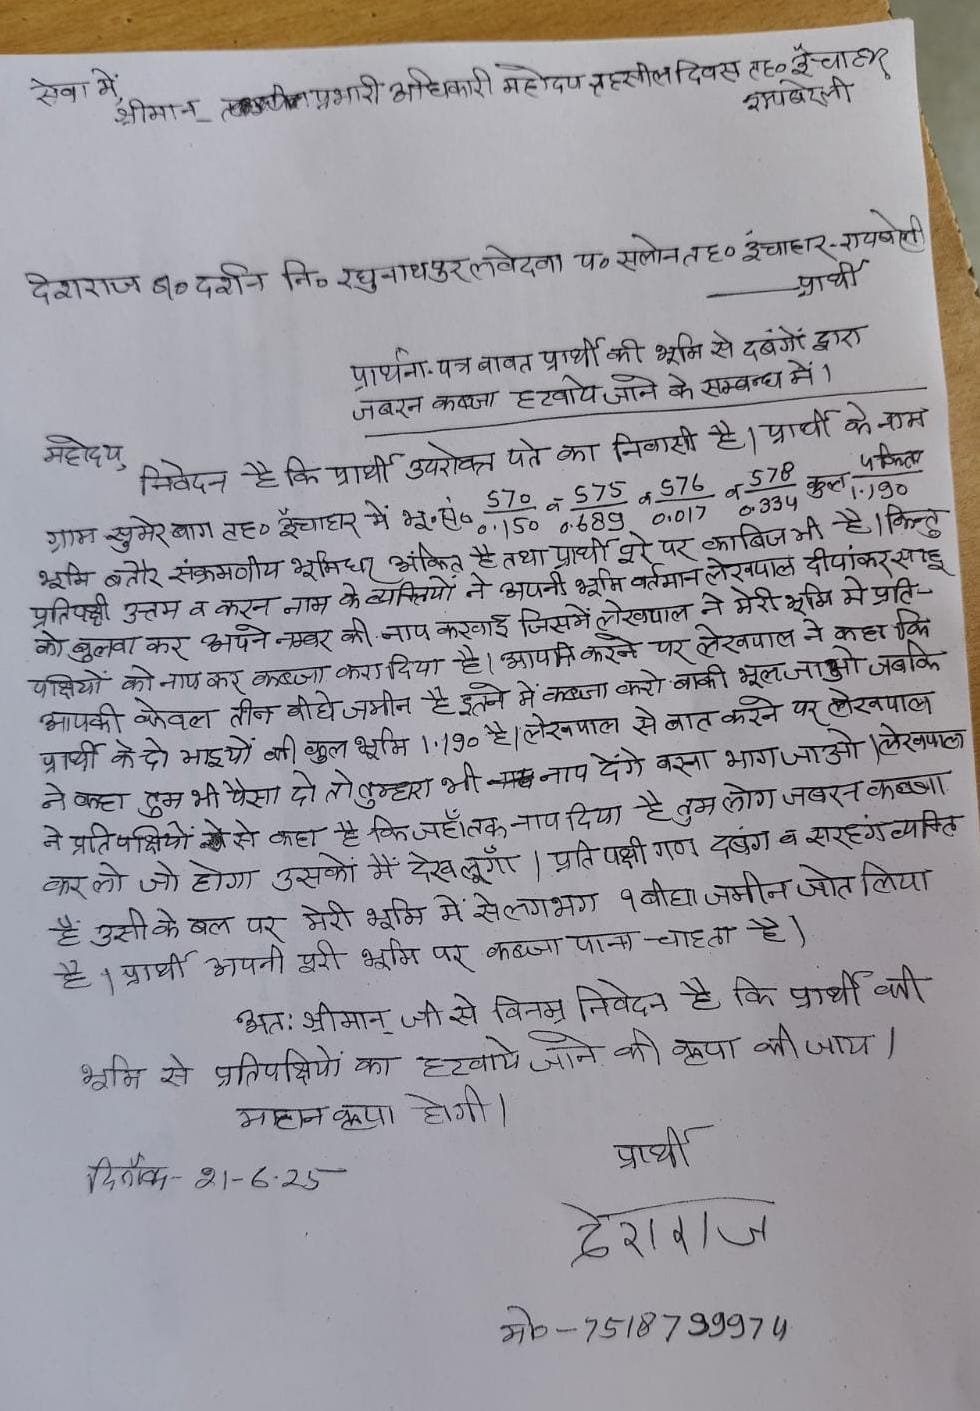 सेवा में,
श्रीमान_ प्रभारी अधिकारी महोदय तहसील दिवस तह० ऊँचाहार
रायबरेली
देशराज ब० दर्शन नि० रघुनाथपुर लवेदवा प० सलोन तह० ऊंचाहार-रायबरेली
——प्रार्थी
प्रार्थना-पत्र बावत प्रार्थी की भूमि से दबंगों द्वारा
जबरन कब्जा हटवाये जाने के सम्बन्ध में।
महोदय,
निवेदन है कि प्रार्थी उपरोक्त पते का निवासी है। प्रार्थी के नाम
ग्राम सुमेर बाग तह० ऊँचाहार में भू.सं० 570/0.150 व 575/0.689 व 576/0.017 व 578/0.334 कुल 4 किता/1.190
भूमि बतौर संक्रमणीय भूमिधर अंकित है तथा प्रार्थी पूरे पर काबिज भी है। किन्तु
प्रतिपक्षी उत्तम व करन नाम के व्यक्तियों ने अपनी भूमि वर्तमान लेखपाल दीपांकर साहू
को बुलवा कर अपने नम्बर की नाप करवाई जिसमें लेखपाल ने मेरी भूमि मे प्रति-
पक्षियों को नाप कर कब्जा करा दिया है। आपत्ति करने पर लेखपाल ने कहा कि
आपकी केवल तीन बीघे जमीन है इतने में कब्जा करो बाकी भूल जाओ जबकि
प्रार्थी के दो भाइयों की कुल भूमि 1.190 है। लेखपाल से बात करने पर लेखपाल
ने कहा तुम भी पैसा दो तो तुम्हारा भी नाप देंगे वरना भाग जाओ। लेखपाल
ने प्रतिपक्षियों से कहा है कि जहाँ तक नाप दिया है तुम लोग जबरन कब्जा
कर लो जो होगा उसकों मैं देख लूँगा। प्रतिपक्षी गण दबंग व सरहंग व्यक्ति
हैं उसी के बल पर मेरी भूमि में से लगभग १ बीघा जमीन जोत लिया
है। प्रार्थी अपनी पूरी भूमि पर कब्जा पाना चाहता है।
अतः श्रीमान् जी से विनम्र निवेदन है कि प्रार्थी की
भूमि से प्रतिपक्षियों का हटवाये जाने की कृपा की जाय।
महान कृपा होगी।
दिनाँक- 21-6-25
प्रार्थी
देशराज
मो०-7518799974